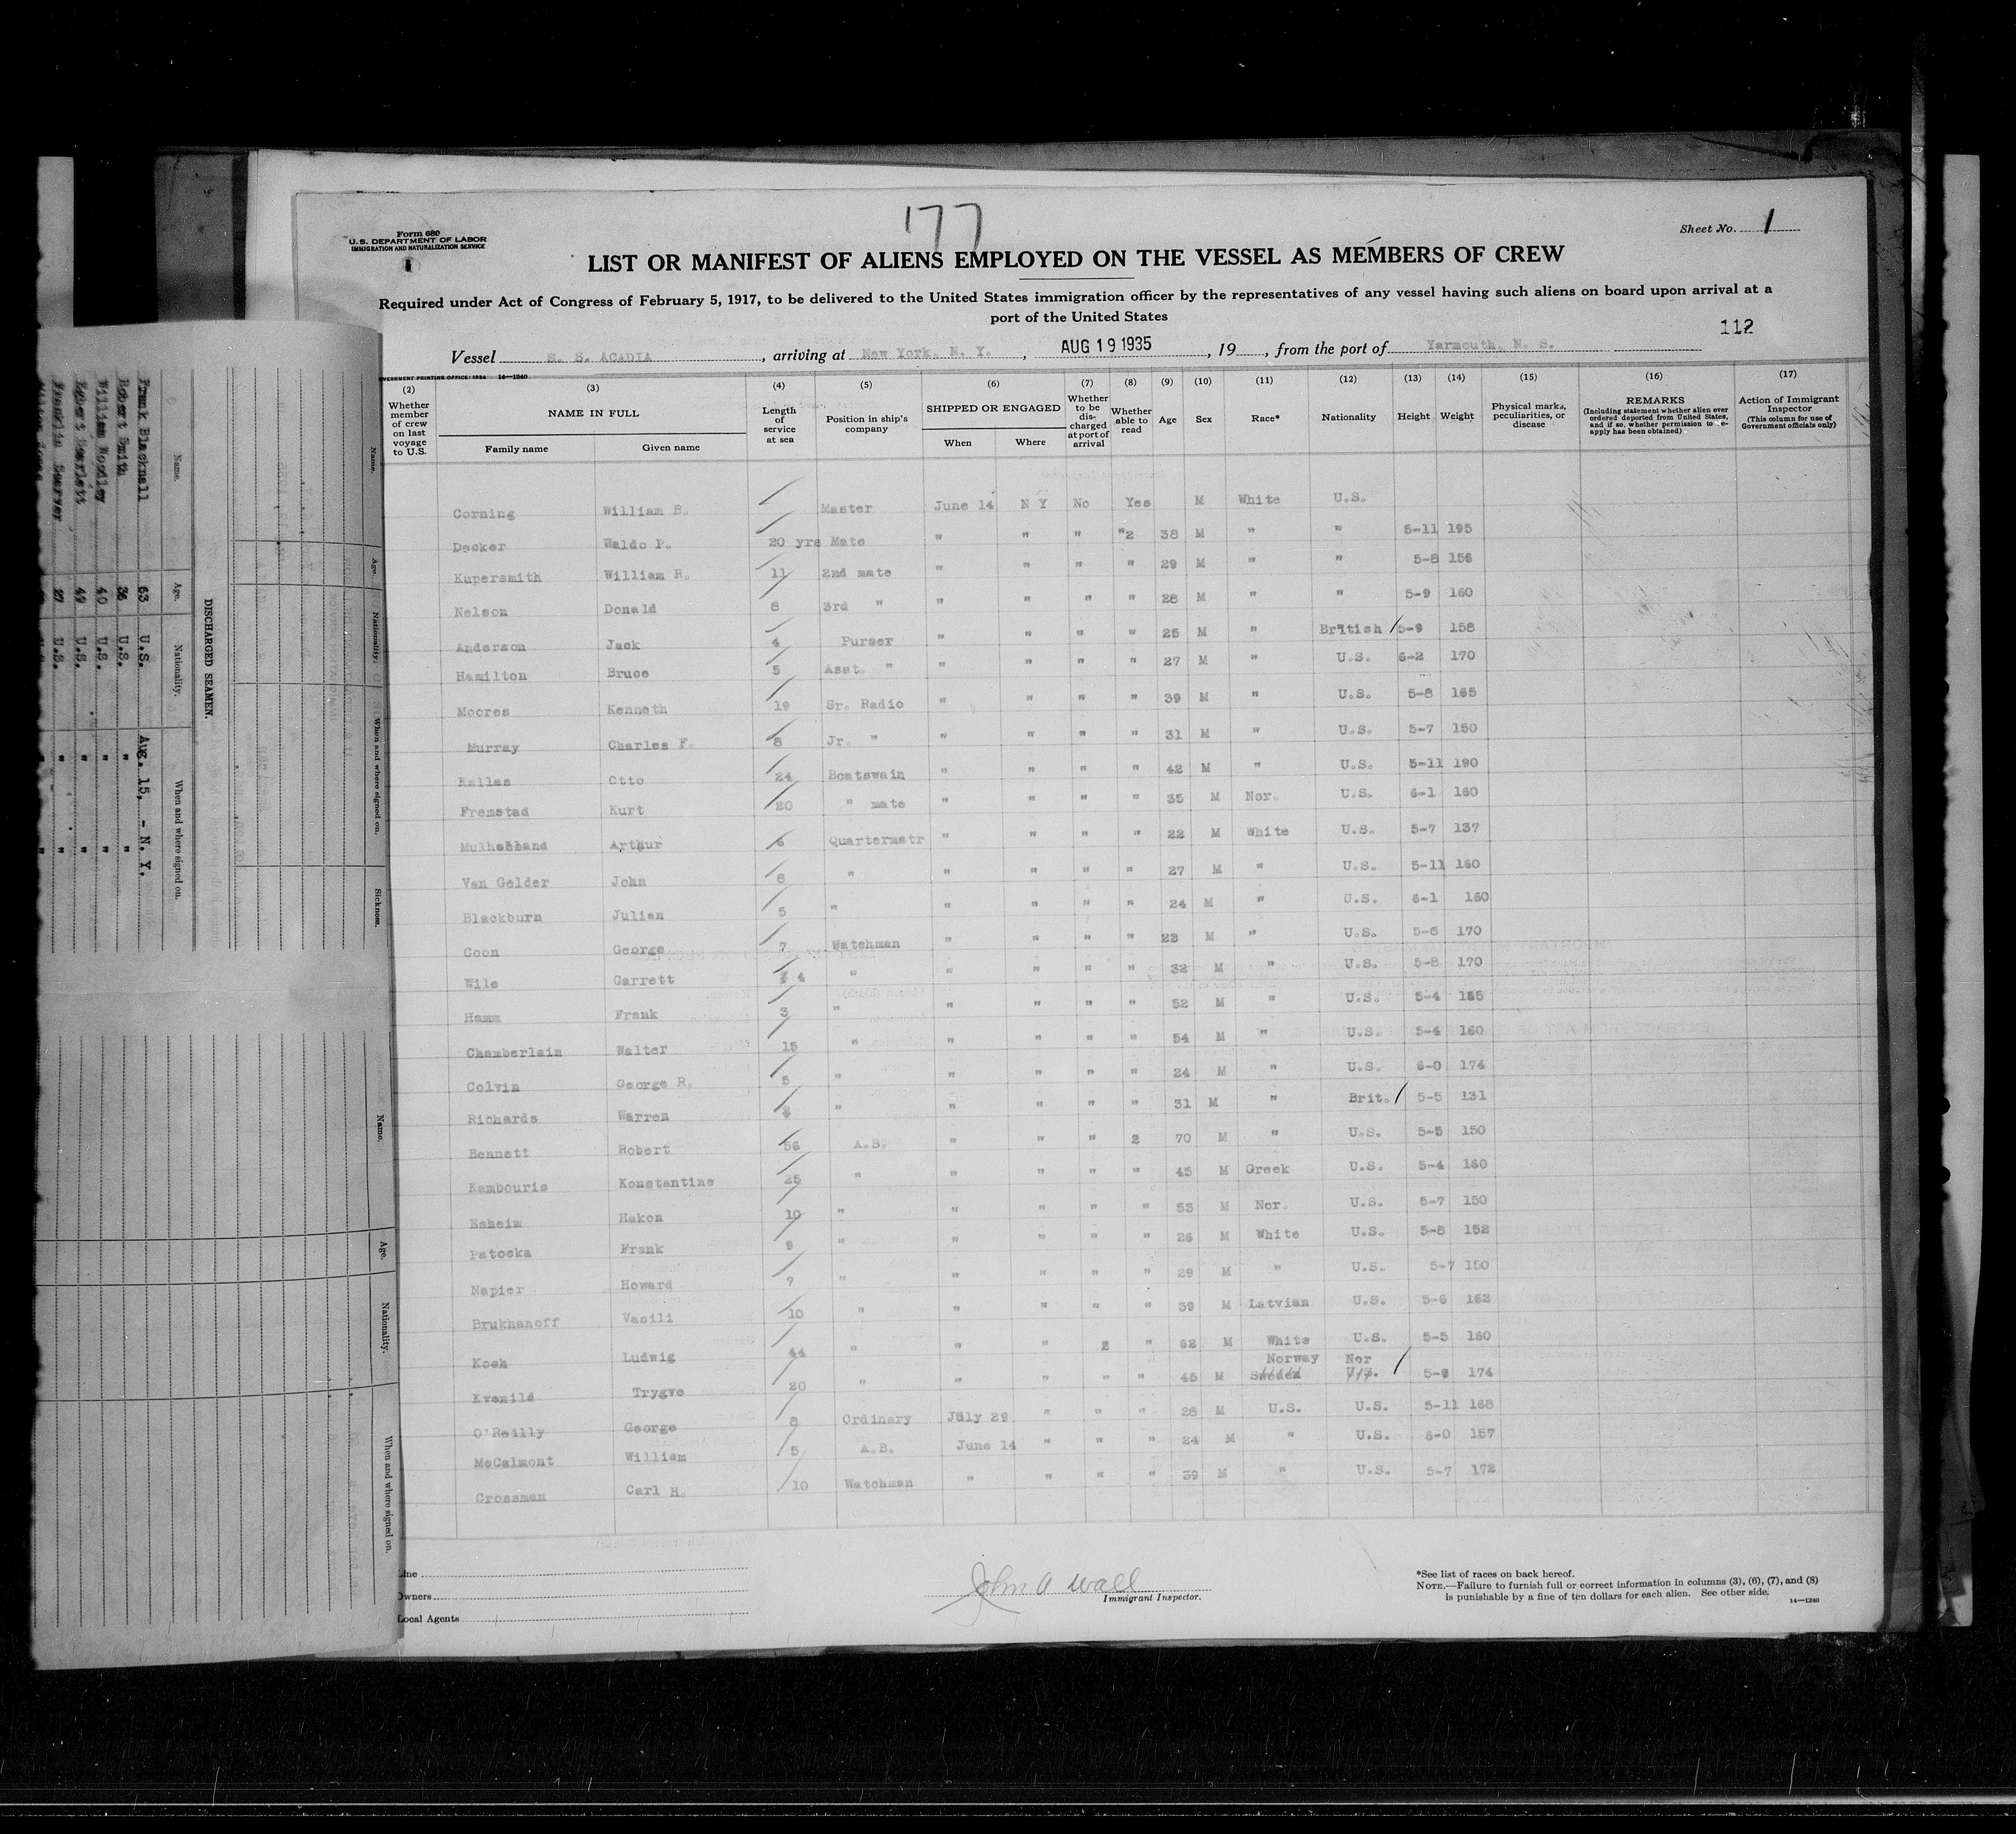 177
Form 680
U.S. DEPARTMENT OF LABOR
IMMIGRATION AND NATURALIZATION SERVICE
Sheet No. 1
LIST OR MANIFEST OF ALIENS EMPLOYED ON THE VESSEL AS MEMBERS OF CREW
Required under Act of Congress of February 5, 1917, to be delivered to the United States immigration officer by the representatives of any vessel having such aliens on board upon arrival at a
port of the United States
112
Vessel S. S. ACADIA, arriving at New York, N. Y., AUG 19 1935, 19, from the port of Yarmouth, N. S.
14—1240
(2) (3) (4) (5) (6) (7) (8) (9) (10) (11) (12) (13) (14) (15) (16) (17)
Whether member of crew on last voyage to U.S. NAME IN FULL Family name Given name Length of service at sea Position in ship's company SHIPPED OR ENGAGED When Where Whether to be discharged at port of arrival Whether able to read Age Sex Race* Nationality Height Weight Physical marks, peculiarities, or disease REMARKS (Including statement whether alien ever ordered deported from United States, and if so, whether permission to re-apply has been obtained) Action of Immigrant Inspector (This column for use of Government officials only)
Corning William B. Master June 14 N Y No Yes M White U.S.
Decker Waldo P. 20 yrs Mate " " " "2 38 M " " 5-11 195
Kupersmith William R. 11 2nd mate " " " " 29 M " " 5-8 156
Nelson Donald 8 3rd " " " " " 28 M " " 5-9 160
Anderson Jack 4 Purser " " " " 25 M " British 5-9 158
Hamilton Bruce 5 Asst. " " " " " 27 M " U.S. 6-2 170
Moores Kenneth 19 Sr. Radio " " " " 39 M " U.S. 5-8 165
Murray Charles F. 8 Jr. " " " " " 31 M " U.S. 5-7 150
Kallas Otto 24 Boatswain " " " " 42 M " U.S. 5-11 190
Fremstad Kurt 20 " mate " " " " 35 M Nor. U.S. 6-1 160
Arthur 6 Quartermstr " " " " 22 M White U.S. 5-7 137
Van Gelder John 8 " " " " " 27 M " U.S. 5-11 160
Blackburn Julien 5 " " " " " 24 M " U.S. 6-1 160
Coon George 7 Watchman " " " " 23 M " U.S. 170
Wile Garrett 4 " " " " " 32 M " U.S. 5-8 170
Hamm Frank 3 " " " " " 52 M " U.S. 5-4
Chamberlain Walter 15 " " " " " 54 M " U.S. 5-4 160
Colvin George R. 5 " " " " " 24 M " U.S. 6-0 174
Richards Warren " " " " " 31 M " Brit. 5-5 131
Bennett Robert 56 A.B. " " " 2 70 M " U.S. 5-5 150
Kambouris Konstantine 25 " " " " " 45 M Greek U.S. 5-4 160
Esheim Hakon 10 " " " " " 53 M Nor. U.S. 5-7 150
Patocka Frank 9 " " " " " 26 M White U.S. 5-8 152
Napier Howard 7 " " " " " 29 M " U.S. 5-7 150
Brukhanoff Vasili 10 " " " " " 39 M Latvian U.S. 5-6 162
Koch Ludwig 44 " " " 2 " 62 M White U.S. 5-5 160
Norway Nor
Kvenild Trygve 20 " " " " " 45 M Sweden U.S. 174
O'Reilly George 8 Ordinary July 29 " " " 28 M U.S. U.S. 5-11 168
McCalmont William 5 A.B. June 14 " " " 24 M " U.S. 6-0 157
Crossman Carl H. 10 Watchman " " " " 39 M " U.S. 5-7 172
Line
Owners
Local Agents
John A Wall
Immigrant Inspector.
*See list of races on back hereof.
NOTE.—Failure to furnish full or correct information in columns (3), (6), (7), and (8)
is punishable by a fine of ten dollars for each alien. See other side.
14—1240
DISCHARGED SEAMEN.
Name. Age. Nationality. When and where signed on.
Frank Blacknall 63 U.S. Aug. 15, - N. Y.
Robert Smith 36 U.S. " "
William Woodley 40 U.S. " "
Egbert Scarlett 49 U.S. " "
Franklin Sarver 27 U.S. " "
Name. Age. Nationality. When and where signed on. Sickness.
Name. Age. Nationality. When and where signed on.